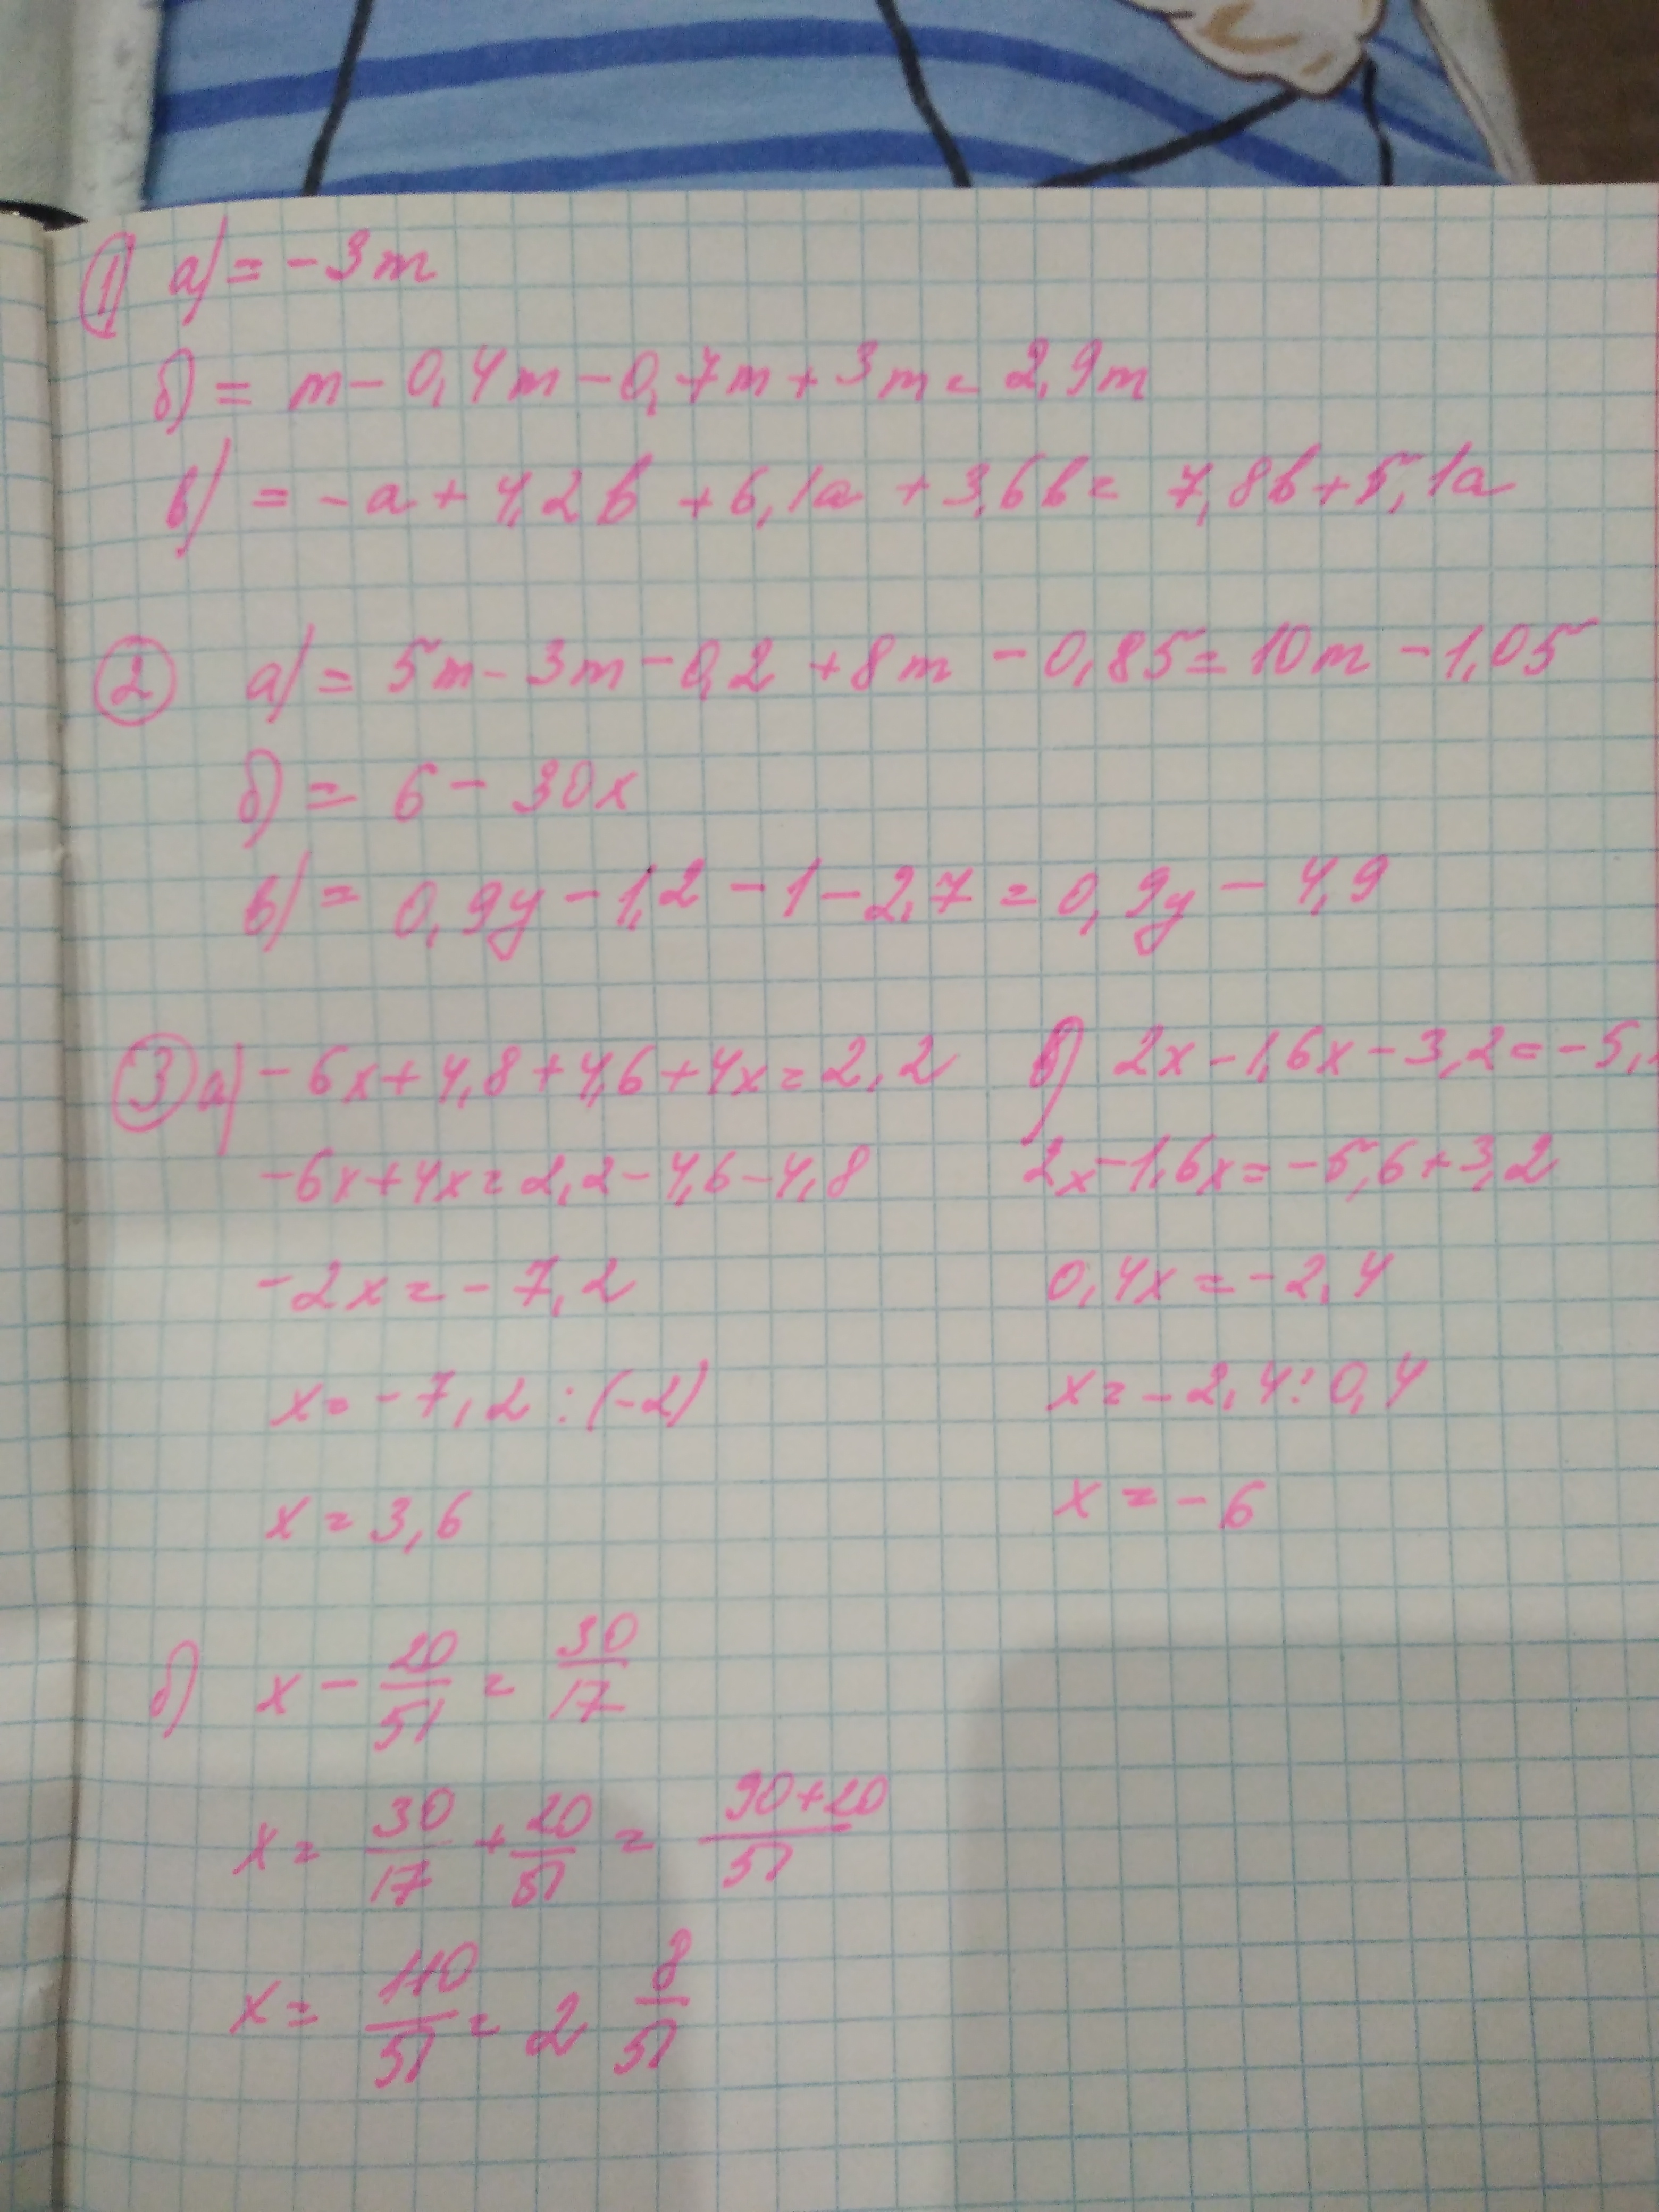 1) а) = -3m
б) = m - 0,4m - 0,7m + 3m = 2,9m
в) = -a + 4,2b + 6,1a + 3,6b = 7,8b + 5,1a
2) а) = 5m - 3m - 0,2 + 8m - 0,85 = 10m - 1,05
б) = 6 - 30x
в) = 0,9y - 1,2 - 1 - 2,7 = 0,9y - 4,9
3) а) -6x + 4,8 + 4,6 + 4x = 2,2
-6x + 4x = 2,2 - 4,6 - 4,8
-2x = -7,2
x = -7,2 : (-2)
x = 3,6
в) 2x - 1,6x - 3,2 = -5,
2x - 1,6x = -5,6 + 3,2
0,4x = -2,4
x = -2,4 : 0,4
x = -6
б) x - 20/51 = 30/17
x = 30/17 + 20/51 = 90+20/51
x = 110/51 = 2 8/51